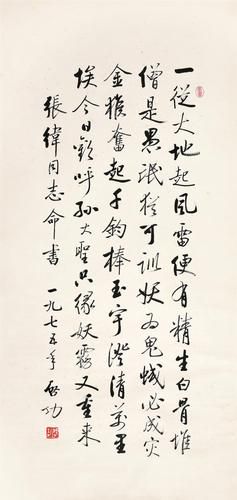 一從大地起風雷便有精生白骨堆
僧是愚氓猶可訓妖為鬼蜮必成災
金猴奮起千鈞棒玉宇澄清萬里
埃今日歡呼孫大聖只緣妖霧又重來
張緯同志命書 一九七五年 啟功